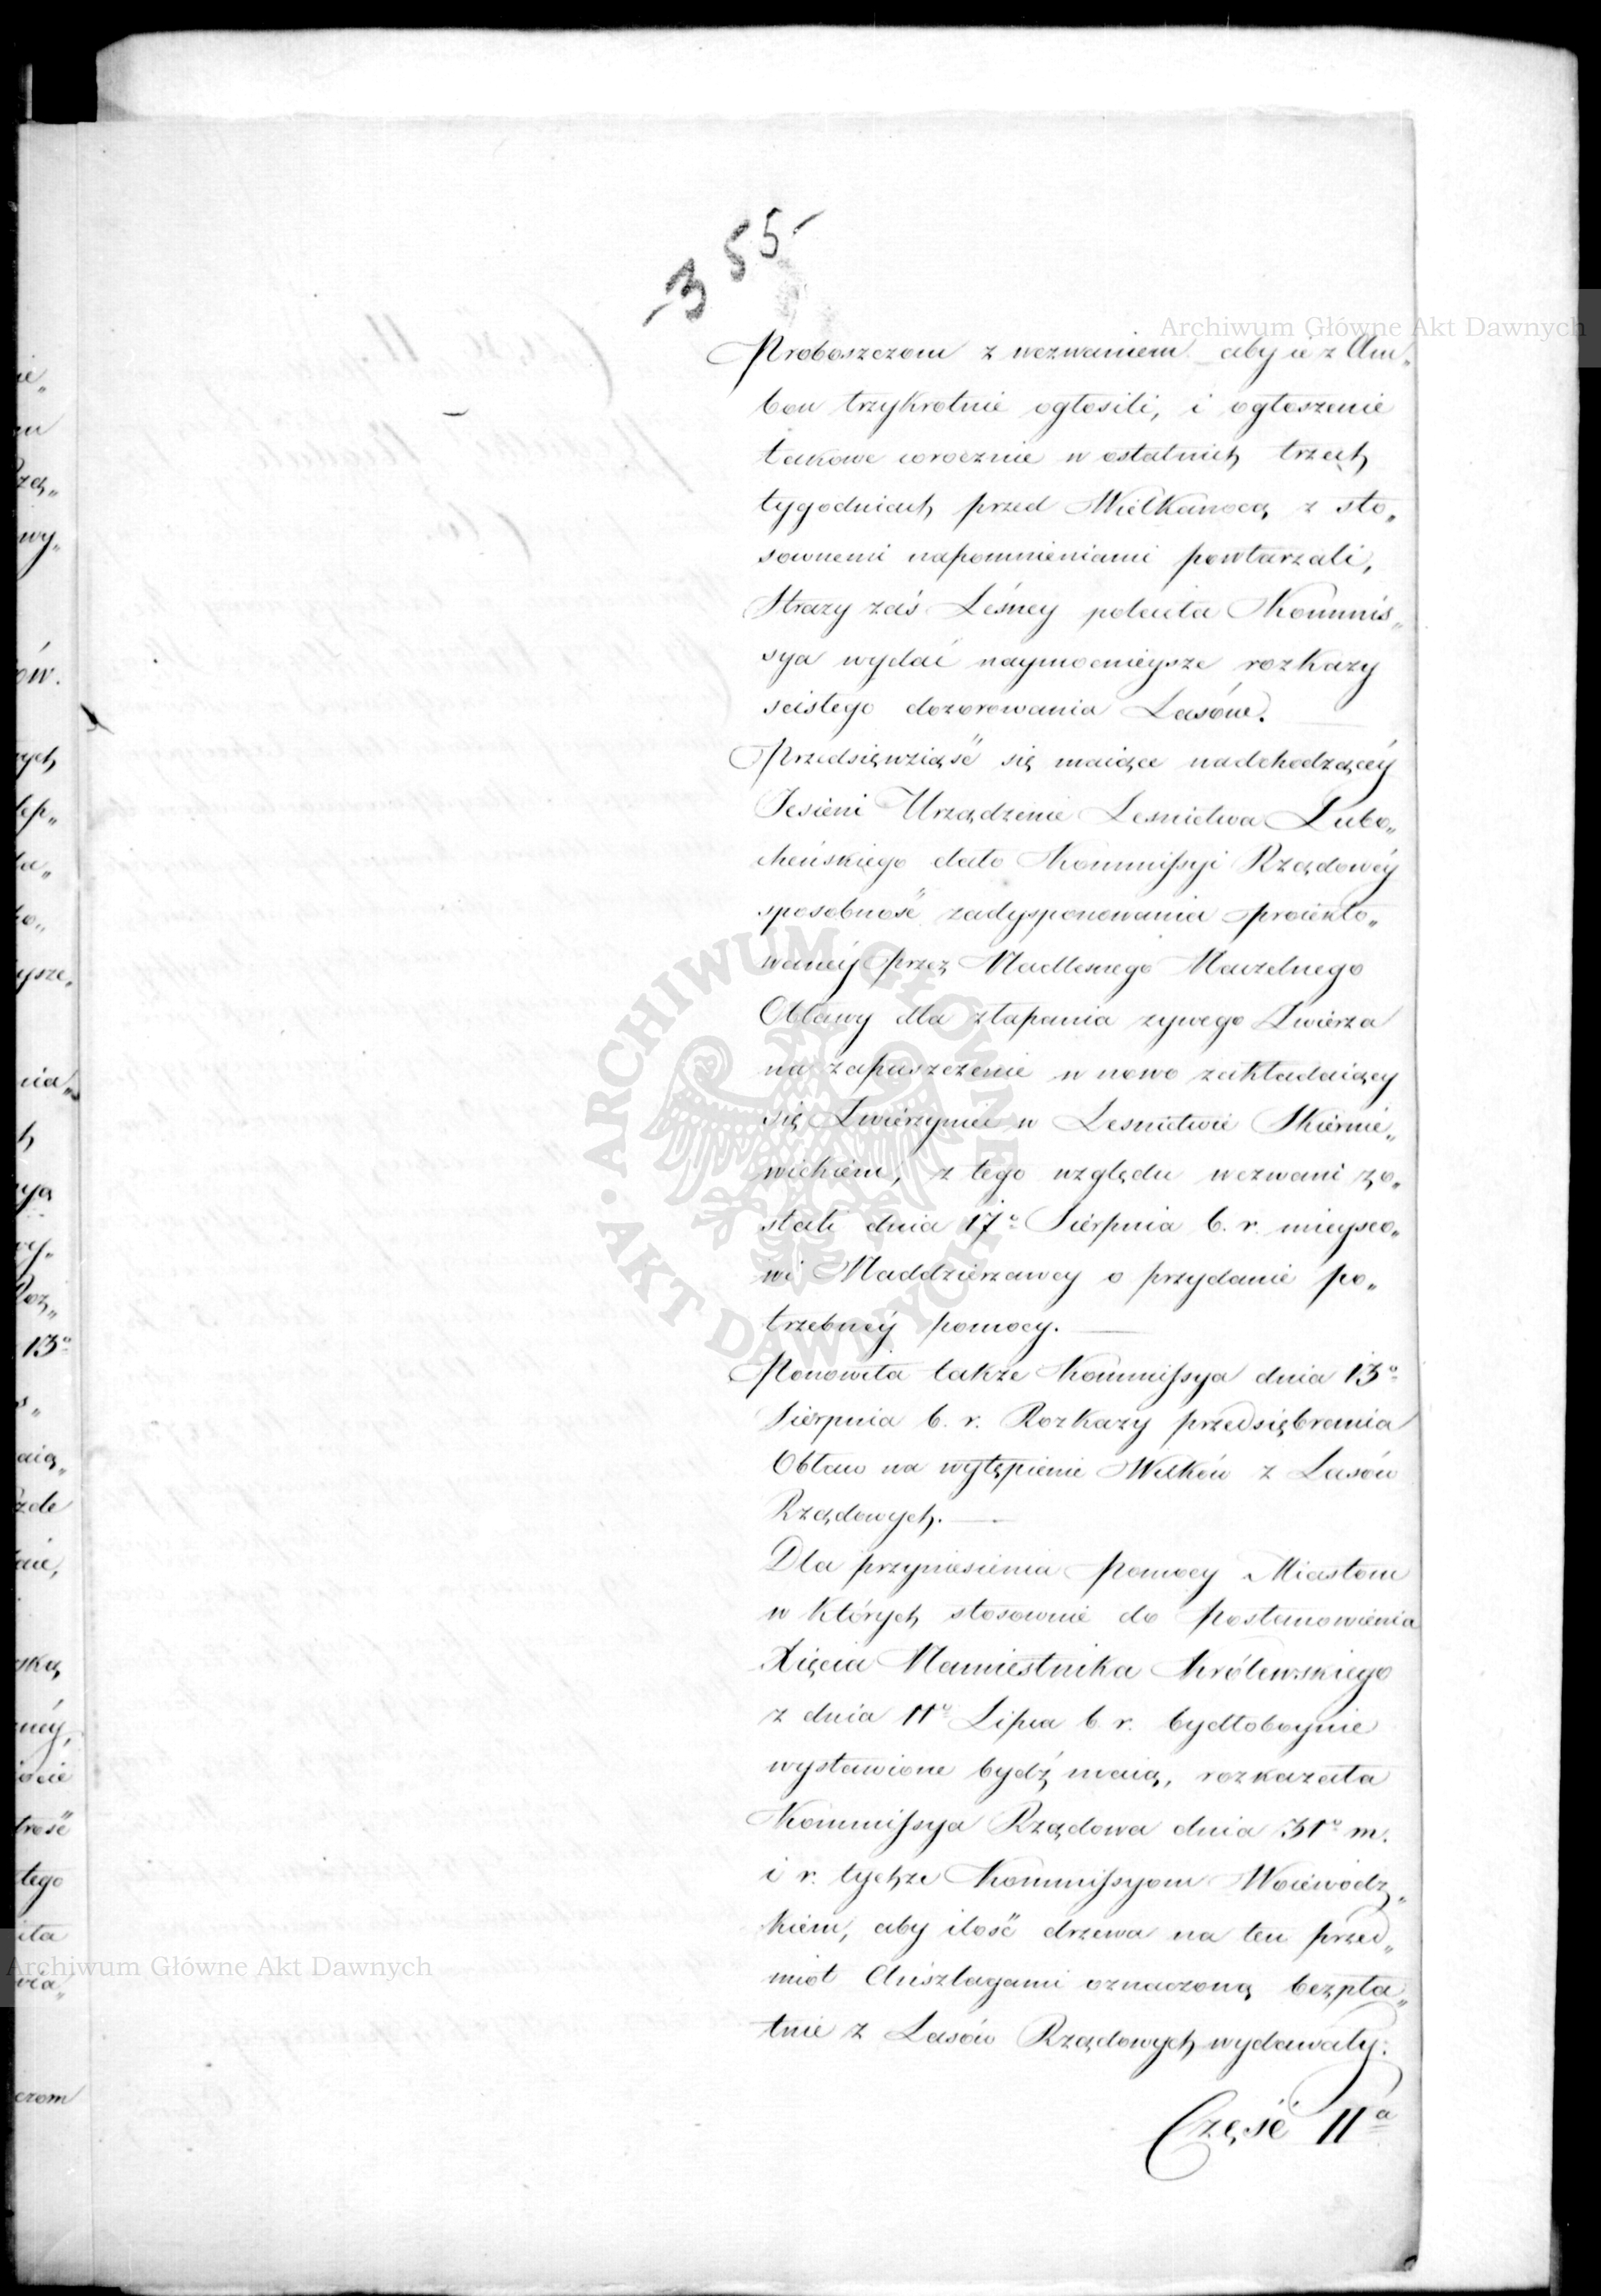 -355-
Archiwum Główne Akt Dawnych
Proboszczom z wezwaniem aby ie z Am„
bon trzykrotnie ogłosili, i ogłoszenie
takowe corocznie w ostatnich trzech
tygodniach przed Wielkanocą z sto„
sownemi napomnieniami powtarzali,
Strazy zaś Leśney poleciła Kommis„
sya wydać naymocnieysze rozkazy
scisłego dozorowania Lasów.
Przedsięwziąść się maiące nadchodzącéy
Jesieni Urządzenie Lesnictwa Lubo„
cheńskiego dało Kommissyi Rządowéy
sposobność zadysponowania proiekto„
wanéy przez Nadlesnego Naczelnego
Obławy dla złapania zywego Zwierza
na zapuszczenie w nowo zakładaiącéy
się Zwierzyniec w Lesnictwie Skiernie„
wickiém, z tego względu wezwani zo„
stali dnia 17º Sierpnia b. r. mieysco„
wi Naddzierzawcy o przydanie po„
trzebnéy pomocy.
Ponowiła także Kommissya dnia 13º
Sierpnia b. r. Rozkazy przedsiębrania
Obław na wytępienie Wilków z Lasów
Rządowych.
Dla przyniesienia Pomocy Miastom
w których stosownie do Postanowienia
Xięcia Namiestnika Królewskiego
z dnia 11º Lipca b. r. bydłobóynie
wystawione bydź maią, rozkazała
Kommissya Rządowa dnia 31º m.
i r. tychże Kommissyom Woiewódz„
kiem, aby ilość drzewa na ten przed„
miot Anszlagami oznaczoną bezpła„
tnie z Lasów Rządowych wydawały.
Część IIª
ARCHIWUM GŁÓWNE
AKT DAWNYCH
Archiwum Główne Akt Dawnych